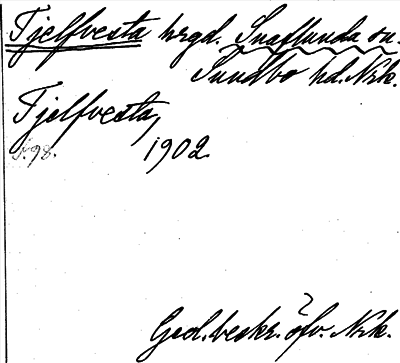 Tjelfvesta hrgd. Snaflunda sn.
Sundbo hd. Nrk.
Tjelfvesta,
s. 98. 1902
God. beskr. öfv. Nrk.